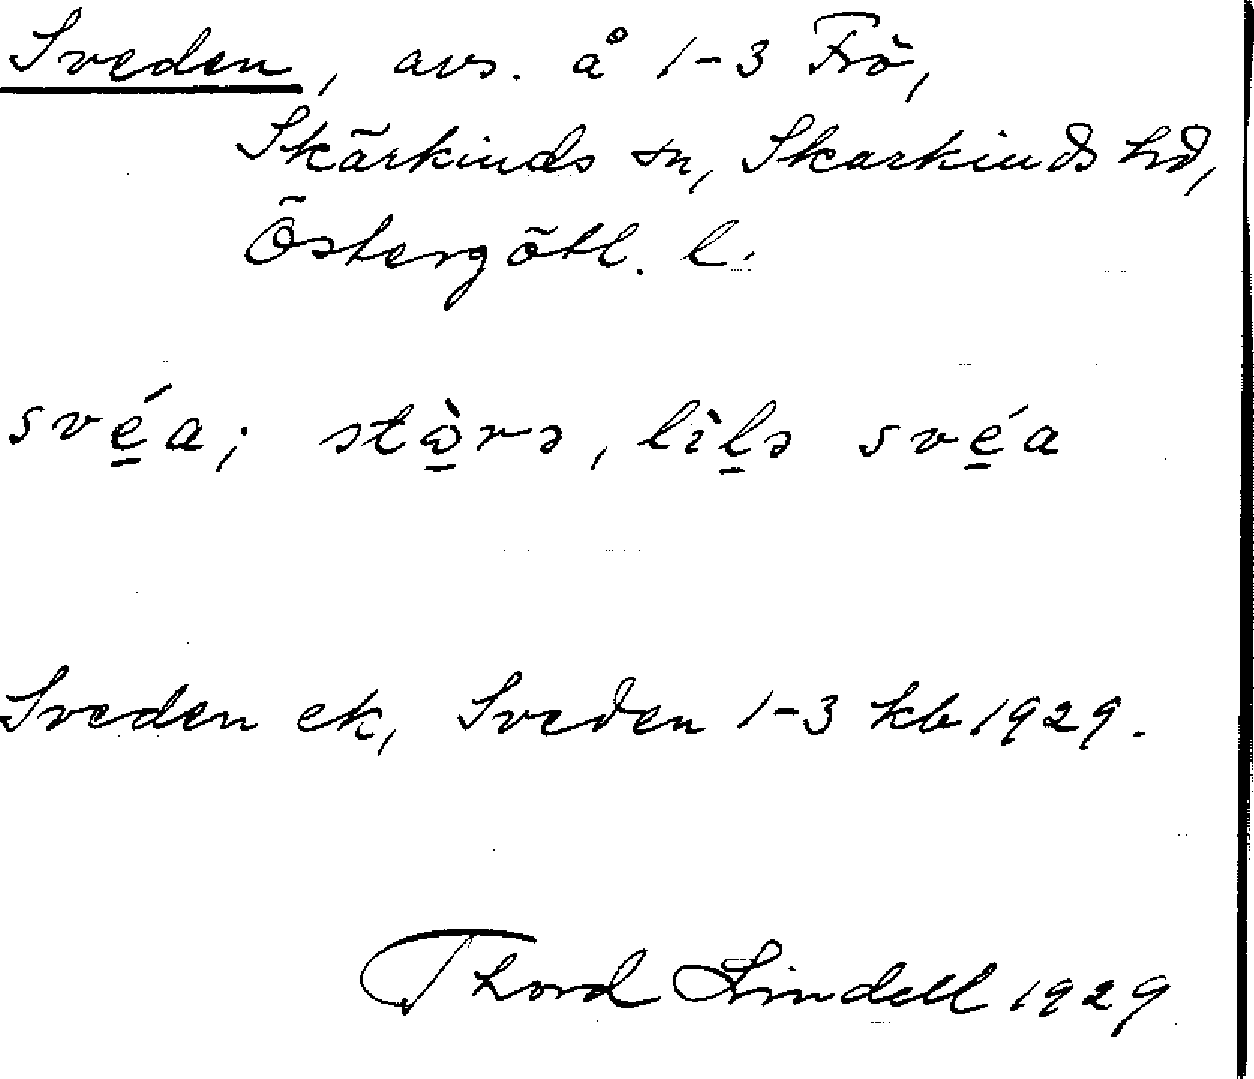 Sveden, avs. å 1-3 Frö,
Skärkinds sn, Skärkinds hd,
Östergötl. l.
své̱a; stɔ̱̀rə, lìḻə své̱a
Sveden ek, Sveden 1-3 kb 1929.
Thord Lindell 1929